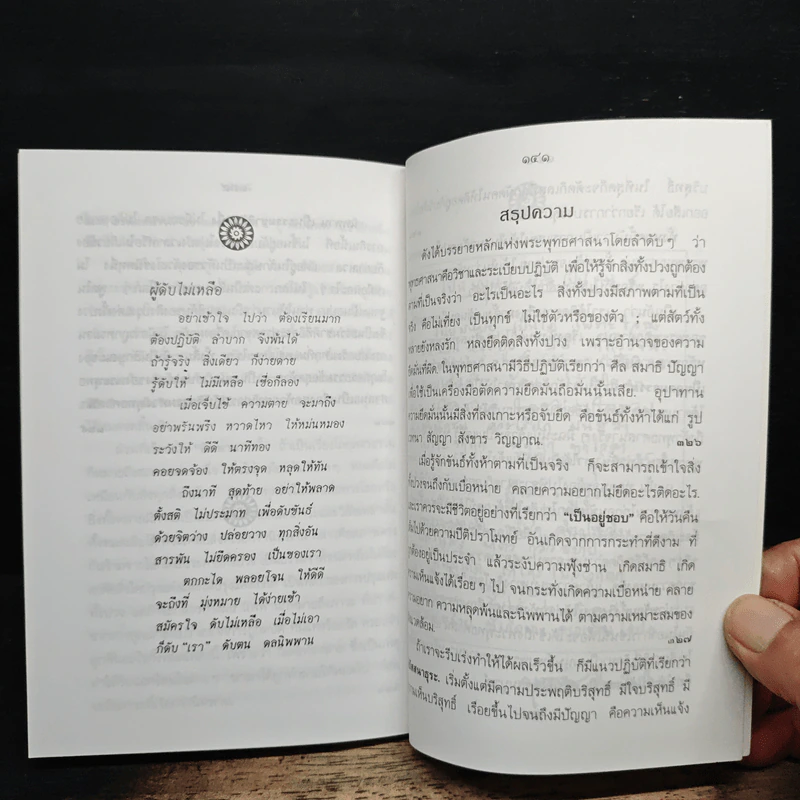 ผู้ดับไม่เหลือ
อย่าเข้าใจ ไปว่า ต้องเรียนมาก
ต้องปฏิบัติ ลำบาก จึงพ้นได้
ถ้ารู้จริง สิ่งเดียว ก็ง่ายดาย
รู้ดับให้ ไม่มีเหลือ เชื่อก็ลอง
เมื่อเจ็บไข้ ความตาย จะมาถึง
อย่าพรั่นพรึง หวาดไหว ให้หม่นหมอง
ระวังให้ ดีดี นาทีทอง
คอยจดจ้อง ให้ตรงจุด หลุดให้ทัน
ถึงนาที สุดท้าย อย่าให้พลาด
ตั้งสติ ไม่ประมาท เพื่อดับขันธ์
ด้วยจิตว่าง ปล่อยวาง ทุกสิ่งอัน
สารพัน ไม่ยึดครอง เป็นของเรา
ตกกะได พลอยโจน ให้ดีดี
จะถึงที่ มุ่งหมาย ได้ง่ายเข้า
สมัครใจ ดับไม่เหลือ เมื่อไม่เอา
ก็ดับ “เรา” ดับตน ดลนิพพาน
๑๔๑
สรุปความ
ดังได้บรรยายหลักแห่งพระพุทธศาสนาโดยลำดับๆ ว่า
พุทธศาสนาคือวิชาและระเบียบปฏิบัติ เพื่อให้รู้จักสิ่งทั้งปวงถูกต้อง
ตามที่เป็นจริงว่า อะไรเป็นอะไร สิ่งทั้งปวงมีสภาพตามที่เป็น
จริง คือไม่เที่ยง เป็นทุกข์ ไม่ใช่ตัวหรือของตัว ; แต่สัตว์ทั้ง
หลายยังหลงรัก หลงยึดติดสิ่งทั้งปวง เพราะอำนาจของความ
ยึดมั่นที่ผิด. ในพุทธศาสนามีวิธีปฏิบัติเรียกว่า ศีล สมาธิ ปัญญา
เพื่อใช้เป็นเครื่องมือตัดความยึดมั่นถือมั่นนั้นเสีย. อุปาทาน
ความยึดมั่นนั้นมีสิ่งที่ลงเกาะหรือจับยึด คือขันธ์ทั้งห้าได้แก่ รูป
เวทนา สัญญา สังขาร วิญญาณ. ๓๒๖
เมื่อรู้จักขันธ์ทั้งห้าตามที่เป็นจริง ก็จะสามารถเข้าใจสิ่ง
ทั้งปวงจนถึงกับเบื่อหน่าย คลายความอยากไม่ยึดอะไรติดอะไร.
และเราควรจะมีชีวิตอยู่อย่างที่เรียกว่า “เป็นอยู่ชอบ” คือให้วันคืน
เต็มไปด้วยความปีติปราโมทย์ อันเกิดจากการกระทำที่ดีงาม ที่
ถูกต้องอยู่เป็นประจำ แล้วระงับความฟุ้งซ่าน เกิดสมาธิ เกิด
ความเห็นแจ้งได้เรื่อยๆ ไป จนกระทั่งเกิดความเบื่อหน่าย คลาย
ความอยาก ความหลุดพ้นและนิพพานได้ ตามความเหมาะสมของ
แวดล้อม. ๓๒๗
ถ้าเราจะรีบเร่งทำให้ได้ผลเร็วขึ้น ก็มีแนวปฏิบัติที่เรียกว่า
วิปัสสนาธุระ. เริ่มตั้งแต่มีความประพฤติบริสุทธิ์ มีใจบริสุทธิ์ มี
ความเห็นบริสุทธิ์ เรื่อยขึ้นไปจนถึงมีปัญญา คือความเห็นแจ้ง